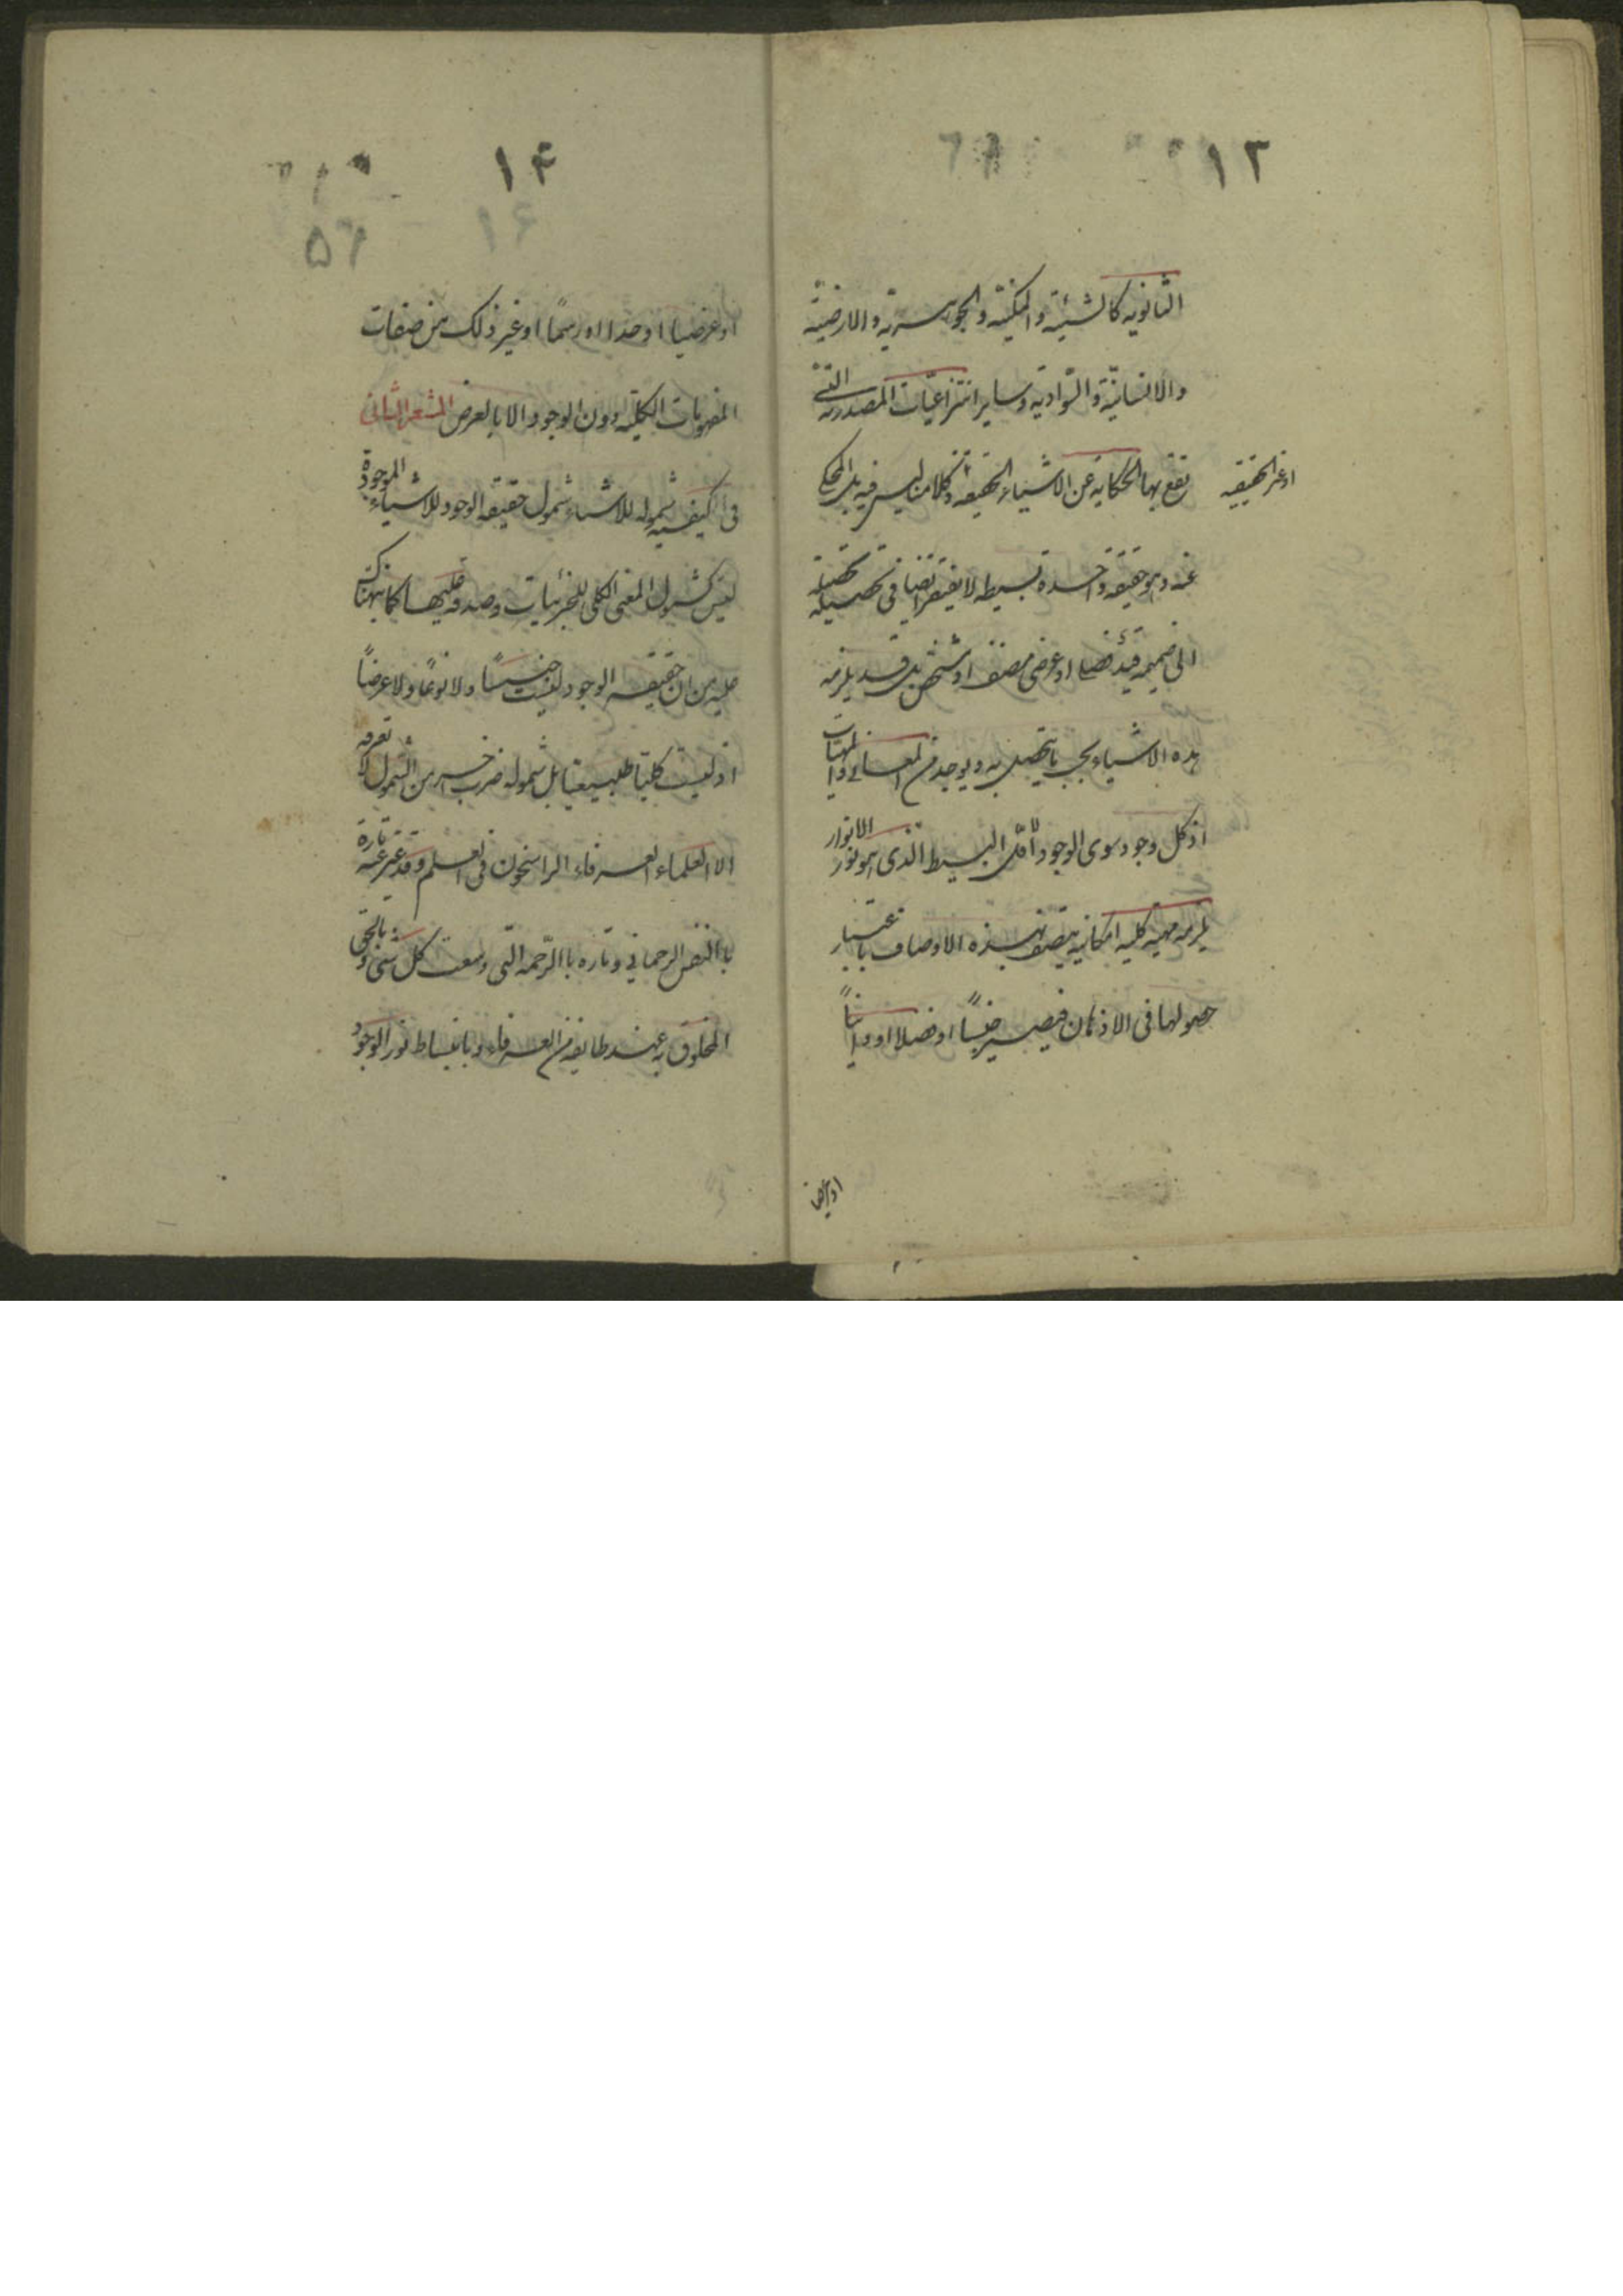 ١٣
الثانويه كالشيئية والممكنيّه والجوهريّه والارضيّة
والانسانيّة والسّوادية وساير انتزاعيّات المصدرية التى
تقع بها الحكاية عن الاشياء الحقيقه وكلامنا ليس فيه بل المحكى
او غير الحقيقيه
عنه وهو حقيقة واحدة بسيطه لا يفتقر ايضا فى تحصيله
الى ضميمه قيد فصلى او عرضى مصنف او مشخص بل قد يلزمه
هذه الاشياء بحسب ما يتحصل به ويوجد من المعانى والمهيات
اذ كل وجود سوى الوجود الاول البسيط الذى هو نور الانوار
يلزمه مهية كليه امكانيه يتصف بهذه الاوصاف باعتبار
حصولها فى الاذهان فيصير جنسًا او فصلا او ذاتيًا
او عرضيا
١٤
١٤
٥٦
او عرضيا او حدا او رسمًا او غير ذلك من صفات
المفهومات الكليّه دون الوجود الا بالعرض المشعر الثانى
فى كيفيه شموله للاشياء شمول حقيقه الوجود للاشياء الموجودة
ليس كشمول المعنى الكلى للجزئيات وصدقه عليها كما نبهناك
عليه من ان حقيقه الوجود ليست جنسًا ولا نوعًا ولا عرضاً
اذ ليست كليّا طبيعيا بل شموله ضرب اخر من الشمول لا تعرفه
الا العلماء العرفاء الراسخون فى العلم وقد عبر عنه تارة
با النفس الرحمانى وتاره با الرّحمه التى وسعت كل شئ و بالحق
المخلوق به عند طايفه من العرفاء و بانبساط نور الوجود